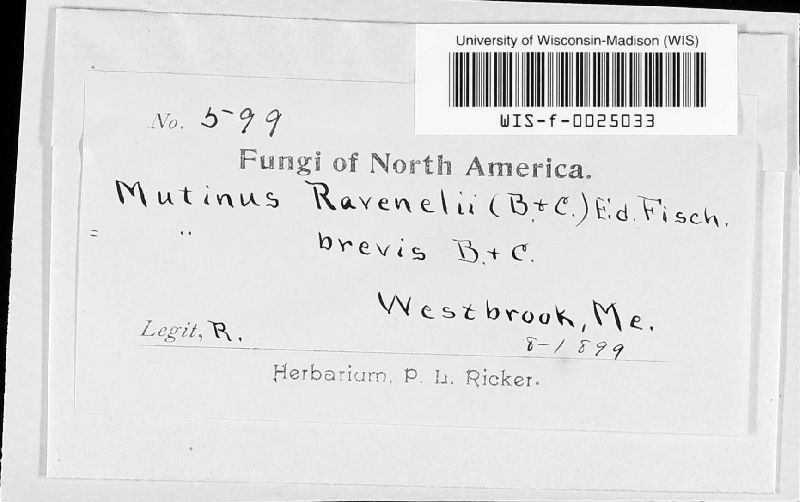 University of Wisconsin-Madison (WIS)
WIS-f-0025033
No. 599
Fungi of North America.
Mutinus Ravenelii (B.+C.) Ed. Fisch.
= " brevis B.+C.
Westbrook, Me.
Legit, R.
8-1899
Herbarium, P. L. Ricker.